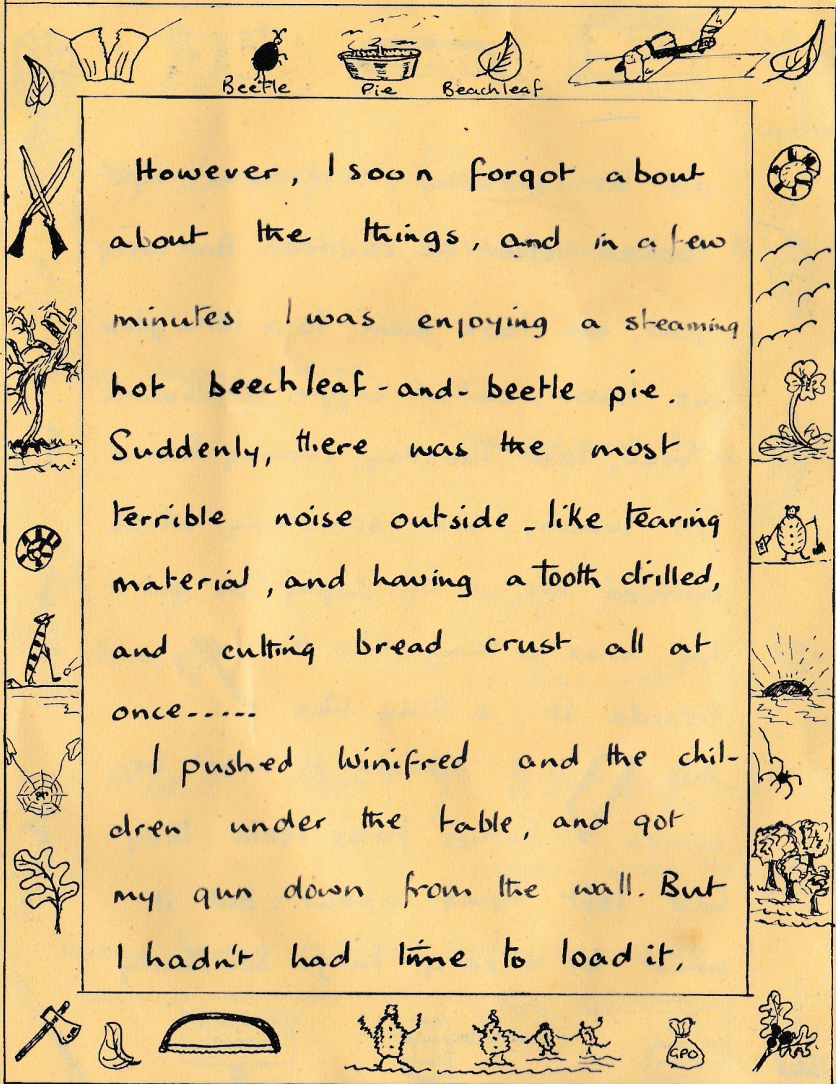 Beetle
Pie
Beachleaf
However, I soon forgot about
about the things, and in a few
minutes I was enjoying a steaming
hot beechleaf-and-beetle pie.
Suddenly, there was the most
terrible noise outside - like tearing
material, and having a tooth drilled,
and cutting bread crust all at
once.....
I pushed Winifred and the chil-
dren under the table, and got
my gun down from the wall. But
I hadn't had time to load it,
GPO